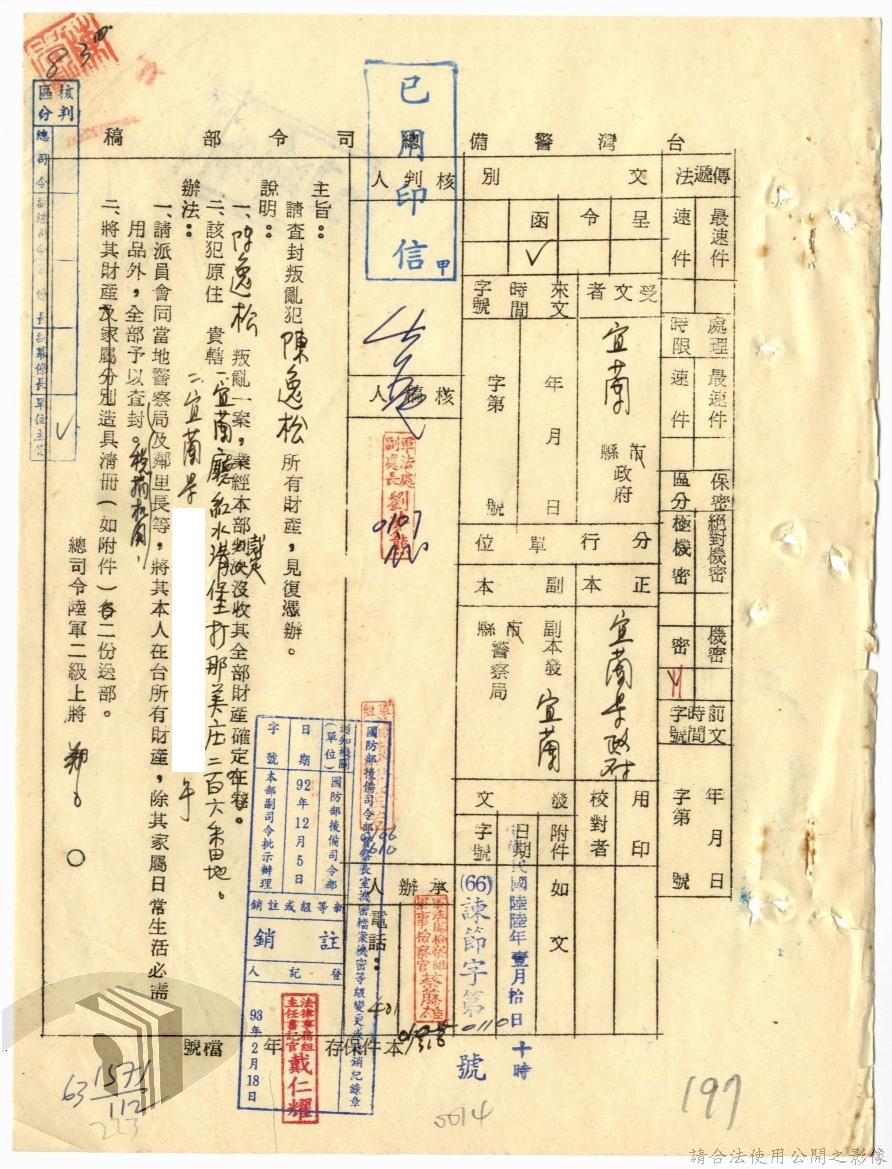 台灣警備總司令部稿
傳遞法
最速件
速件
文別
呈
令
函
✓
核判人
處理時限
最速件
速件
受文者
宜蘭
縣市政府
來文
時間
字號
年月日
字第
號
核稿人
保密區分
絕對機密
極機密
機密
密
分行單位
正本
副本
宜蘭縣政府
副本發宜蘭
縣市警察局
前文
時間
字號
年月日
字第
號
用印
校對者
發文
附件
日期
字號
如文
中華民國陸陸年壹月拾日十時
(66)諫節字第0110號
承辦人
電話:
401
軍法處檢察組
軍事檢察官蔡藤雄
軍法處
副處長劉
0107
主旨:
請查封叛亂犯陳逸松所有財產,見復憑辦。
說明:
一、陳逸松叛亂一案,業經本部裁決沒收其全部財產確定在卷。
二、該犯原住 貴轄一、宜蘭廳紅水溝堡打那美庄二百六番田地。
二、宜蘭縣
辦法:
一、請派員會同當地警察局及鄰里長等,將其本人在台所有財產,除其家屬日常生活必需
用品外,全部予以查封。
二、將其財產及家屬分別造具清冊(如附件)各二份送部。
總司令陸軍二級上將鄭○○
已用印信
甲
核判區分
總司令
副總司令
參謀長
副參謀長
單位主管
✓
國防部後備司令部督察長室機密檔案機密等級變更或註銷紀錄章
通知機關(單位)
國防部後備司令部
日期
92年12月5日
字號
本部副司令批示辦理
新等級或註銷
註銷
登記人
法律事務組
主任書記官戴仁耀
93年2月18日
本件保存 年
檔號
63 1571/112
223
5014
197
請合法使用公開之影像